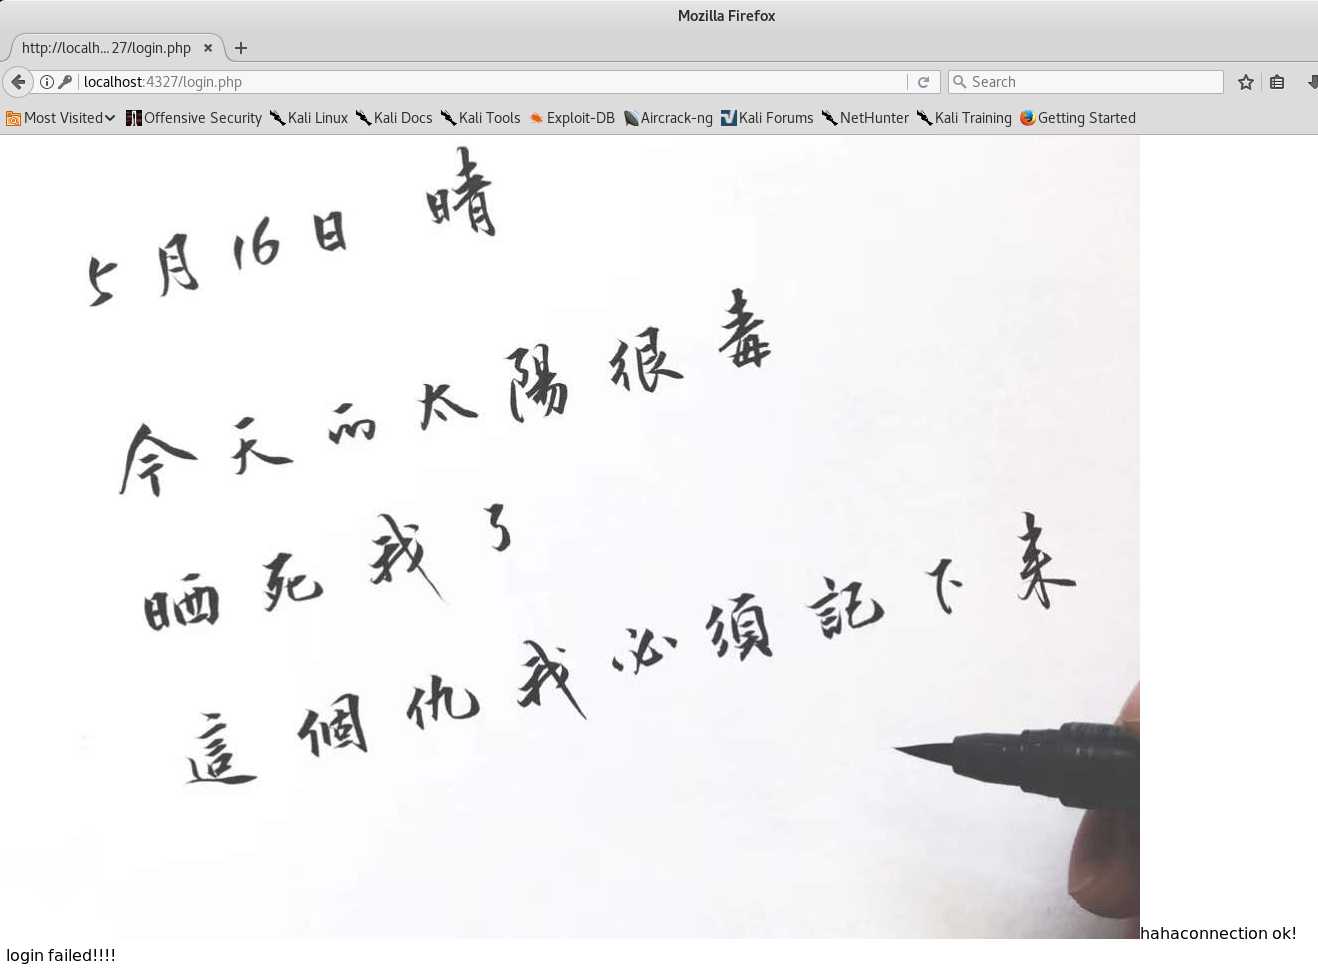 Mozilla Firefox
http://localh...27/login.php
localhost:4327/login.php
Search
Most Visited Offensive Security Kali Linux Kali Docs Kali Tools Exploit-DB Aircrack-ng Kali Forums NetHunter Kali Training Getting Started
5月16日 晴
今天的太陽很毒
晒死我了
這個仇我必須記下来
hahaconnection ok!
login failed!!!!